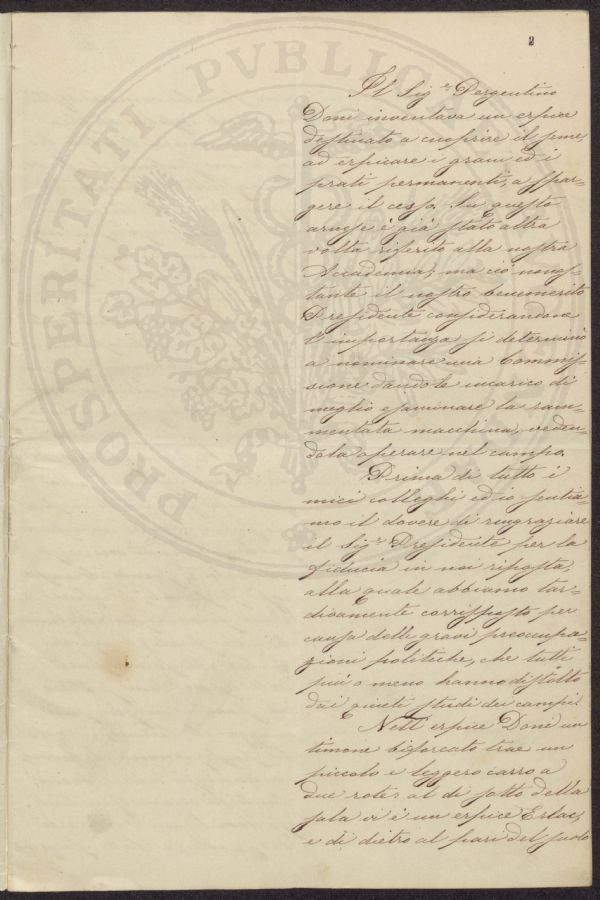 2
PROSPERITATI PVBLICAE
Il Sig.re Pergentino
Doni inventava un erpice
destinato a cuoprire il seme,
ad erpicare i grani ed i
prati permanenti, a spar=
gere il cesso. Su questo
arnese è già stato altra
volta riferito alla nostra
Accademia; ma ciò nonos=
tante il nostro benemerito
Presidente considerandone
l'importanza si determinò
a nominare una Commis=
sione dandole incarico di
meglio esaminare la ram=
mentata macchina, veden=
dola operare nel campo.
Prima di tutto i
miei colleghi ed io sentia=
mo il dovere di ringraziare
il Sig.re Presidente per la
fiducia in noi riposta,
alla quale abbiamo tar=
divamente corrisposto per
causa delle gravi preoccupa=
zioni politiche, che tutti
più o meno hanno distolto
dai quieti studi dei campi.
Nell'erpice Doni un
timone biforcato trae un
piccolo e leggero carro a
due rote: al di sotto della
sala vi è un erpice
e di dietro al pari del suolo